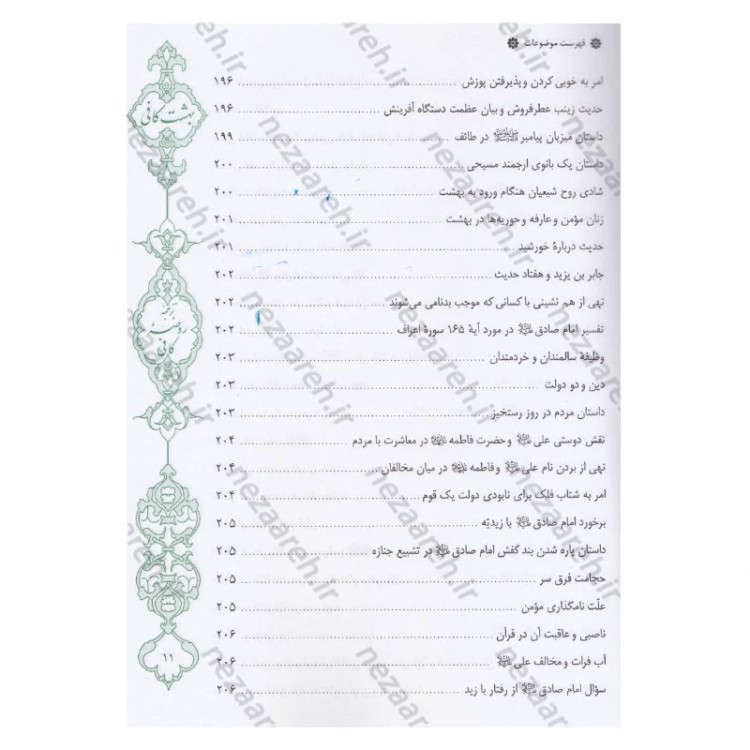 فهرست موضوعات
امر به خوبی کردن و پذیرفتن پوزش ۱۹۶
حدیث زینب عطرفروش و بیان عظمت دستگاه آفرینش ۱۹۶
داستان میزبان پیامبر ﷺ در طائف ۱۹۹
داستان یک بانوی ارجمند مسیحی ۲۰۰
شادی روح شیعیان هنگام ورود به بهشت ۲۰۰
زنان مؤمن و عارفه و حوریه‌ها در بهشت ۲۰۱
حدیث دربارهٔ خورشید ۲۰۱
جابر بن یزید و هفتاد حدیث ۲۰۲
نهی از هم نشینی با کسانی که موجب بدنامی می‌شوند ۲۰۲
تفسیر امام صادق در مورد آیهٔ ۱۶۵ سورهٔ اعراف ۲۰۲
وظیفهٔ سالمندان و خردمندان ۲۰۳
دین و دو دولت ۲۰۳
داستان مردم در روز رستخیز ۲۰۳
نقش دوستی علی و حضرت فاطمه در معاشرت با مردم ۲۰۴
نهی از بردن نام علی و فاطمه در میان مخالفان ۲۰۴
امر به شتاب فلک برای نابودی دولت یک قوم ۲۰۴
برخورد امام صادق با زیدیّه ۲۰۵
داستان پاره شدن بند کفش امام صادق در تشییع جنازه ۲۰۵
حجامت فرق سر ۲۰۵
علّت نامگذاری مؤمن ۲۰۵
ناصبی و عاقبت آن در قرآن ۲۰۶
آب فرات و مخالف علی ۲۰۶
سؤال امام صادق از رفتار با زید ۲۰۶
بهشت کافی
کافی
۱۱
nezaareh.ir